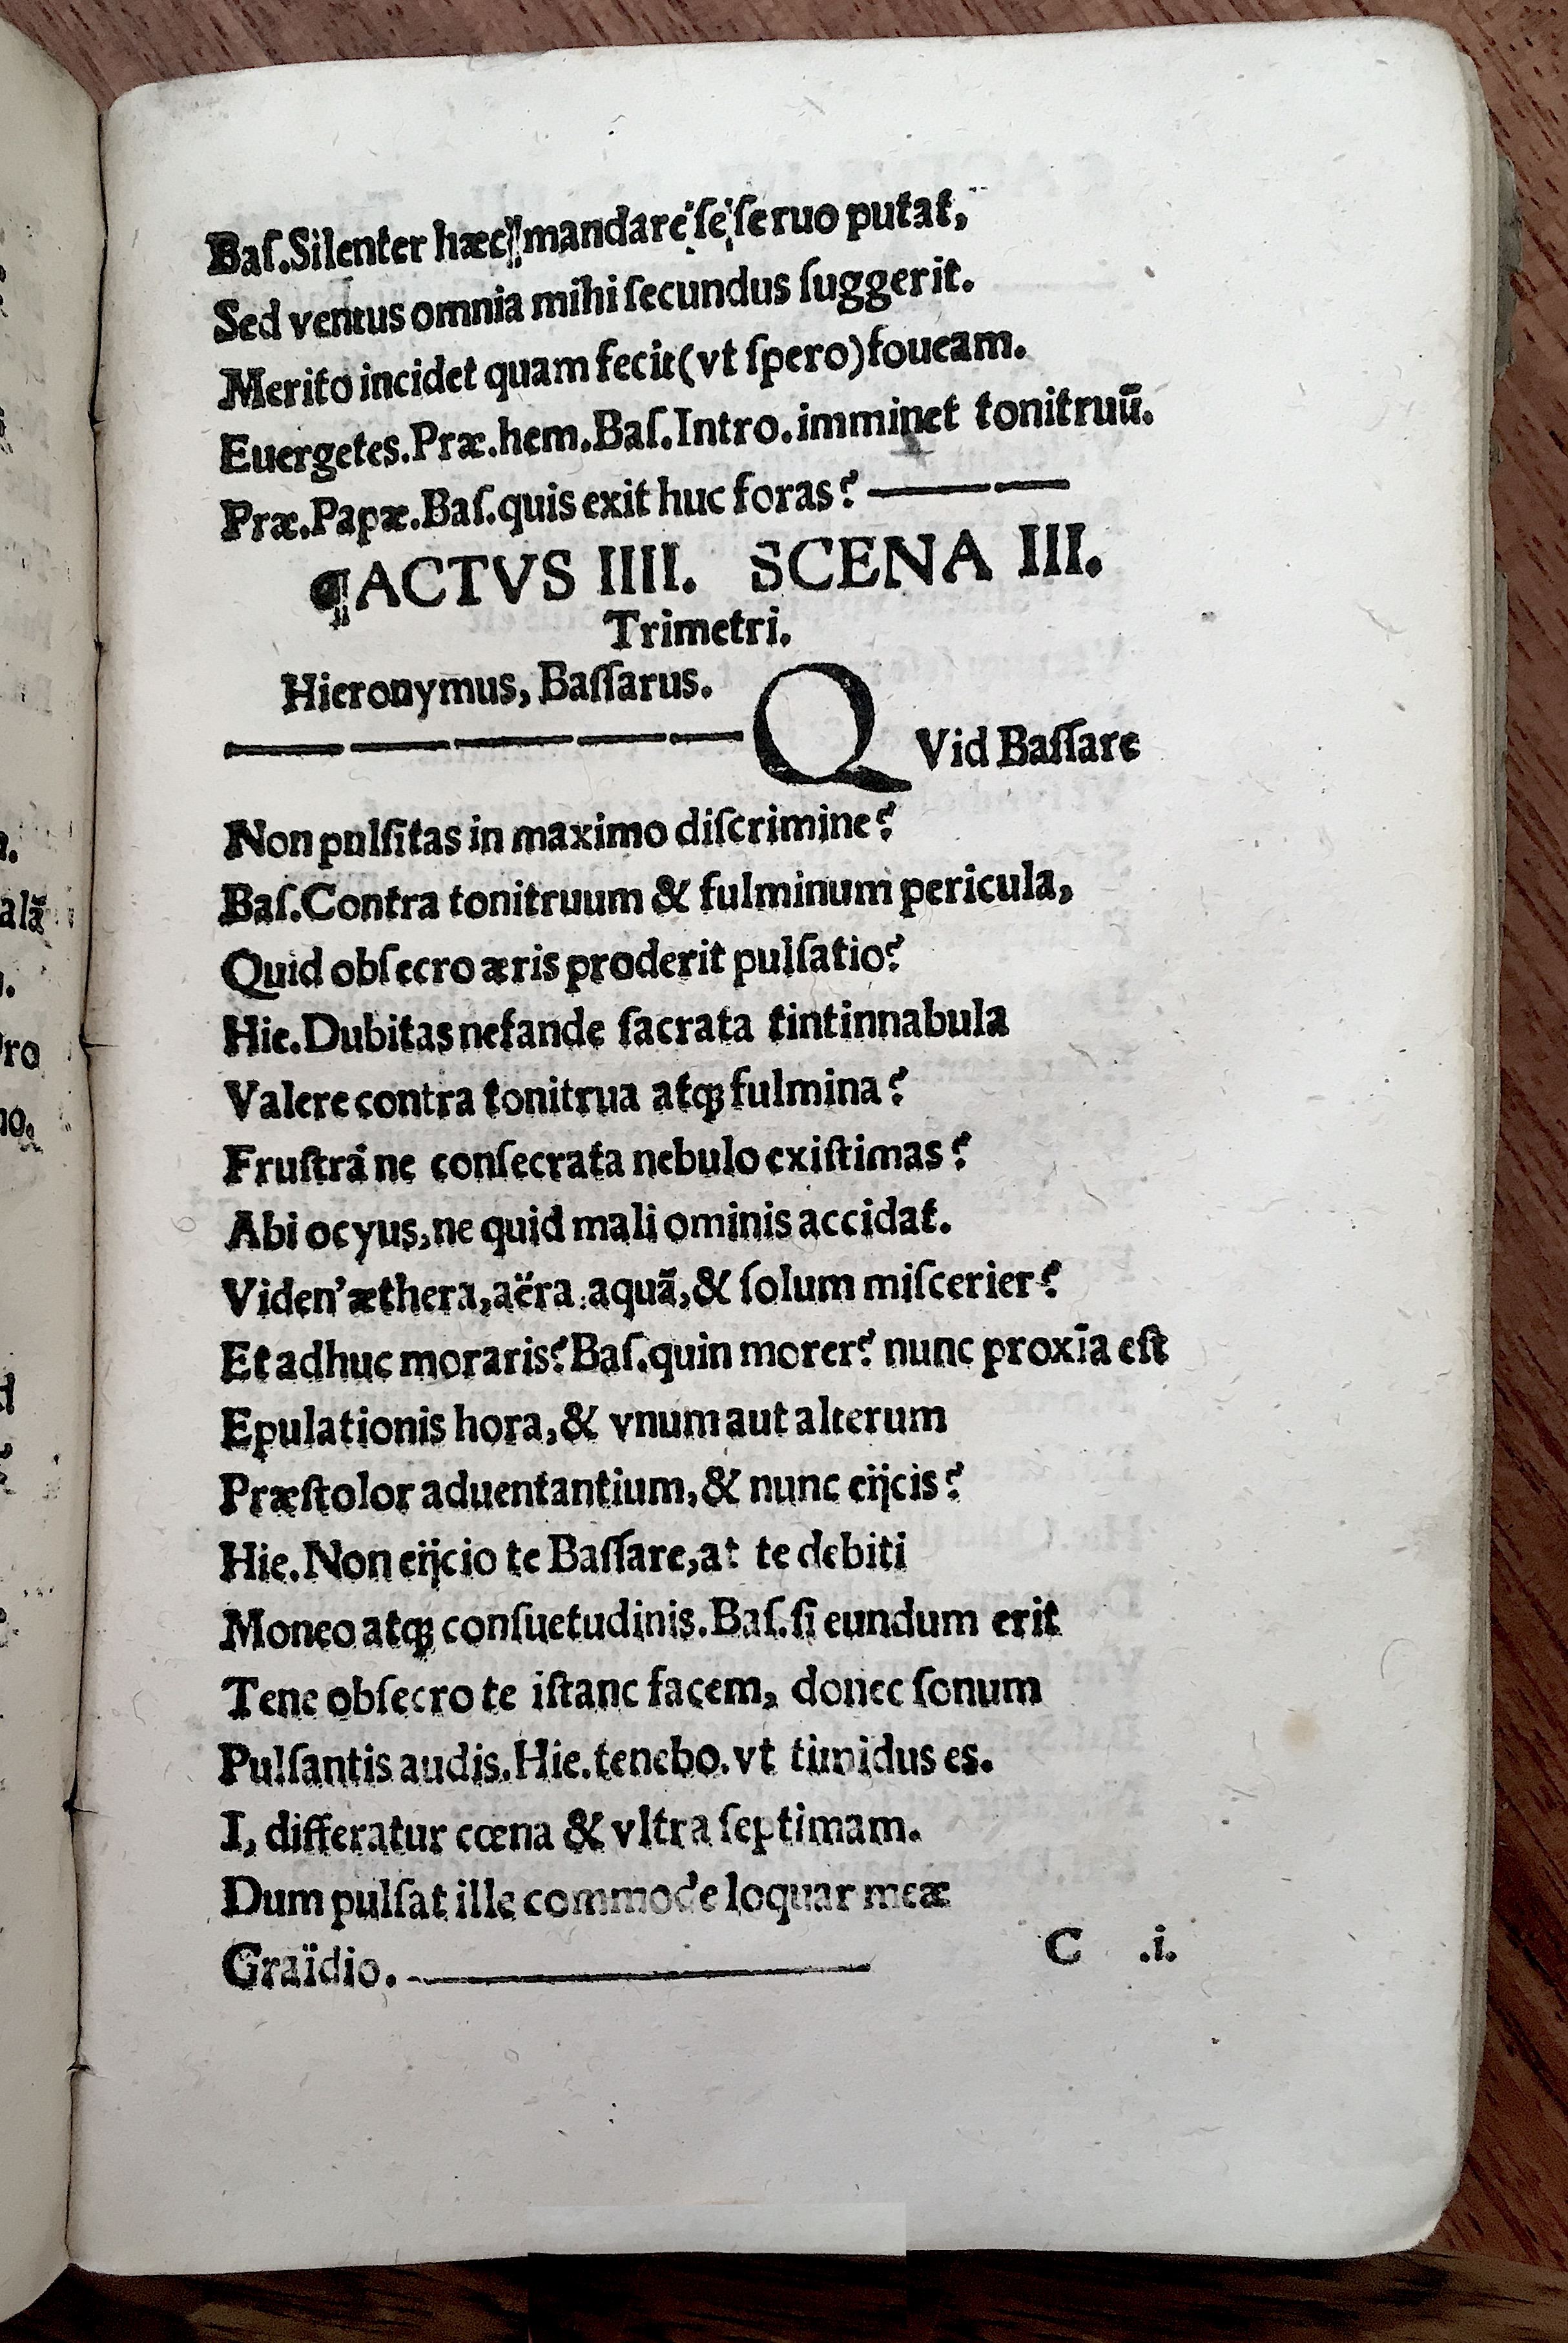 Baſ.Silenter hæc mandare ſe ſeruo putat,
Sed ventus omnia mihi ſecundus ſuggerit.
Merito incidet quam fecit(vt ſpero)foueam.
Euergetes.Præ.hem.Baſ.Intro.imminet tonitruū.
Præ.Papæ.Baſ.quis exit huc foras?
¶ACTVS IIII. SCENA III.
Trimetri.
Hieronymus, Baſſarus.
QVid Baſſare
Non pulſitas in maximo diſcrimine?
Baſ.Contra tonitruum & fulminum pericula,
Quid obſecro æris proderit pulſatio?
Hie.Dubitas nefande ſacrata tintinnabula
Valere contra tonitrua atqꝫ fulmina?
Fruſtrá ne conſecrata nebulo exiſtimas?
Abi ocyus,ne quid mali ominis accidat.
Viden'æthera,aëra.aquã,& ſolum miſcerier?
Et adhuc moraris?Baſ.quin morer? nunc proxīa eſt
Epulationis hora,& vnum aut alterum
Præſtolor aduentantium,& nunc eijcis?
Hie.Non eijcio te Baſſare,at te debiti
Moneo atqꝫ conſuetudinis.Baſ.ſi eundum erit
Tene obſecro te iſtanc facem, donec ſonum
Pulſantis audis.Hie.tenebo.vt timidus es.
I, differatur cœna & vltra ſeptimam.
Dum pulſat ille commode loquar meæ
Graïdio.
C .i.